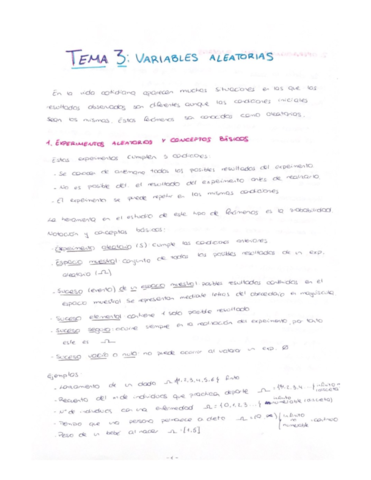 TEMA 3: VARIABLES ALEATORIAS
En la vida cotidiana aparecen muchas situaciones en las que los
resultados observados son diferentes aunque las condiciones iniciales
sean las mismas. Estos fenómenos son conocidos como aleatorios.
1. EXPERIMENTOS ALEATORIOS Y CONCEPTOS BÁSICOS
Estos experimentos cumplen 3 condiciones:
- Se conocen de antemano todos los posibles resultados del experimento
- No es posible del resultado del experimento antes de realizarlo
- El experimento se puede repetir en las mismas condiciones
La herramienta en el estudio de este tipo de fenómenos es la probabilidad
Notación y conceptos básicos:
- Experimento aleatorio cumple las condiciones anteriores
- Espacio muestral conjunto de todos los posibles resultados de un exp.
aleatorio (Ω)
- Suceso (evento) de un espacio muestral: resultados contenidos en el
espacio muestral. Se representan mediante letras del abecedario en mayúsculas
- Suceso elemental contiene 1 solo posible resultado
- Suceso seguro: ocurre siempre en la realización del experimento, por tanto
este es Ω
- Suceso vacío o nulo no puede ocurrir al realizar un exp. Ø
Ejemplos:
- Lanzamiento de un dado Ω {1,2,3,4,5,6} finito
- Recuento del nº de individuos que practican deporte Ω: {0,1,2,...}
- nº de individuos con una enfermedad Ω: {0,1,2...}
- Tiempo que una persona permanece a dieta Ω:
- Peso de un bebé al nacer Ω: [1,5]